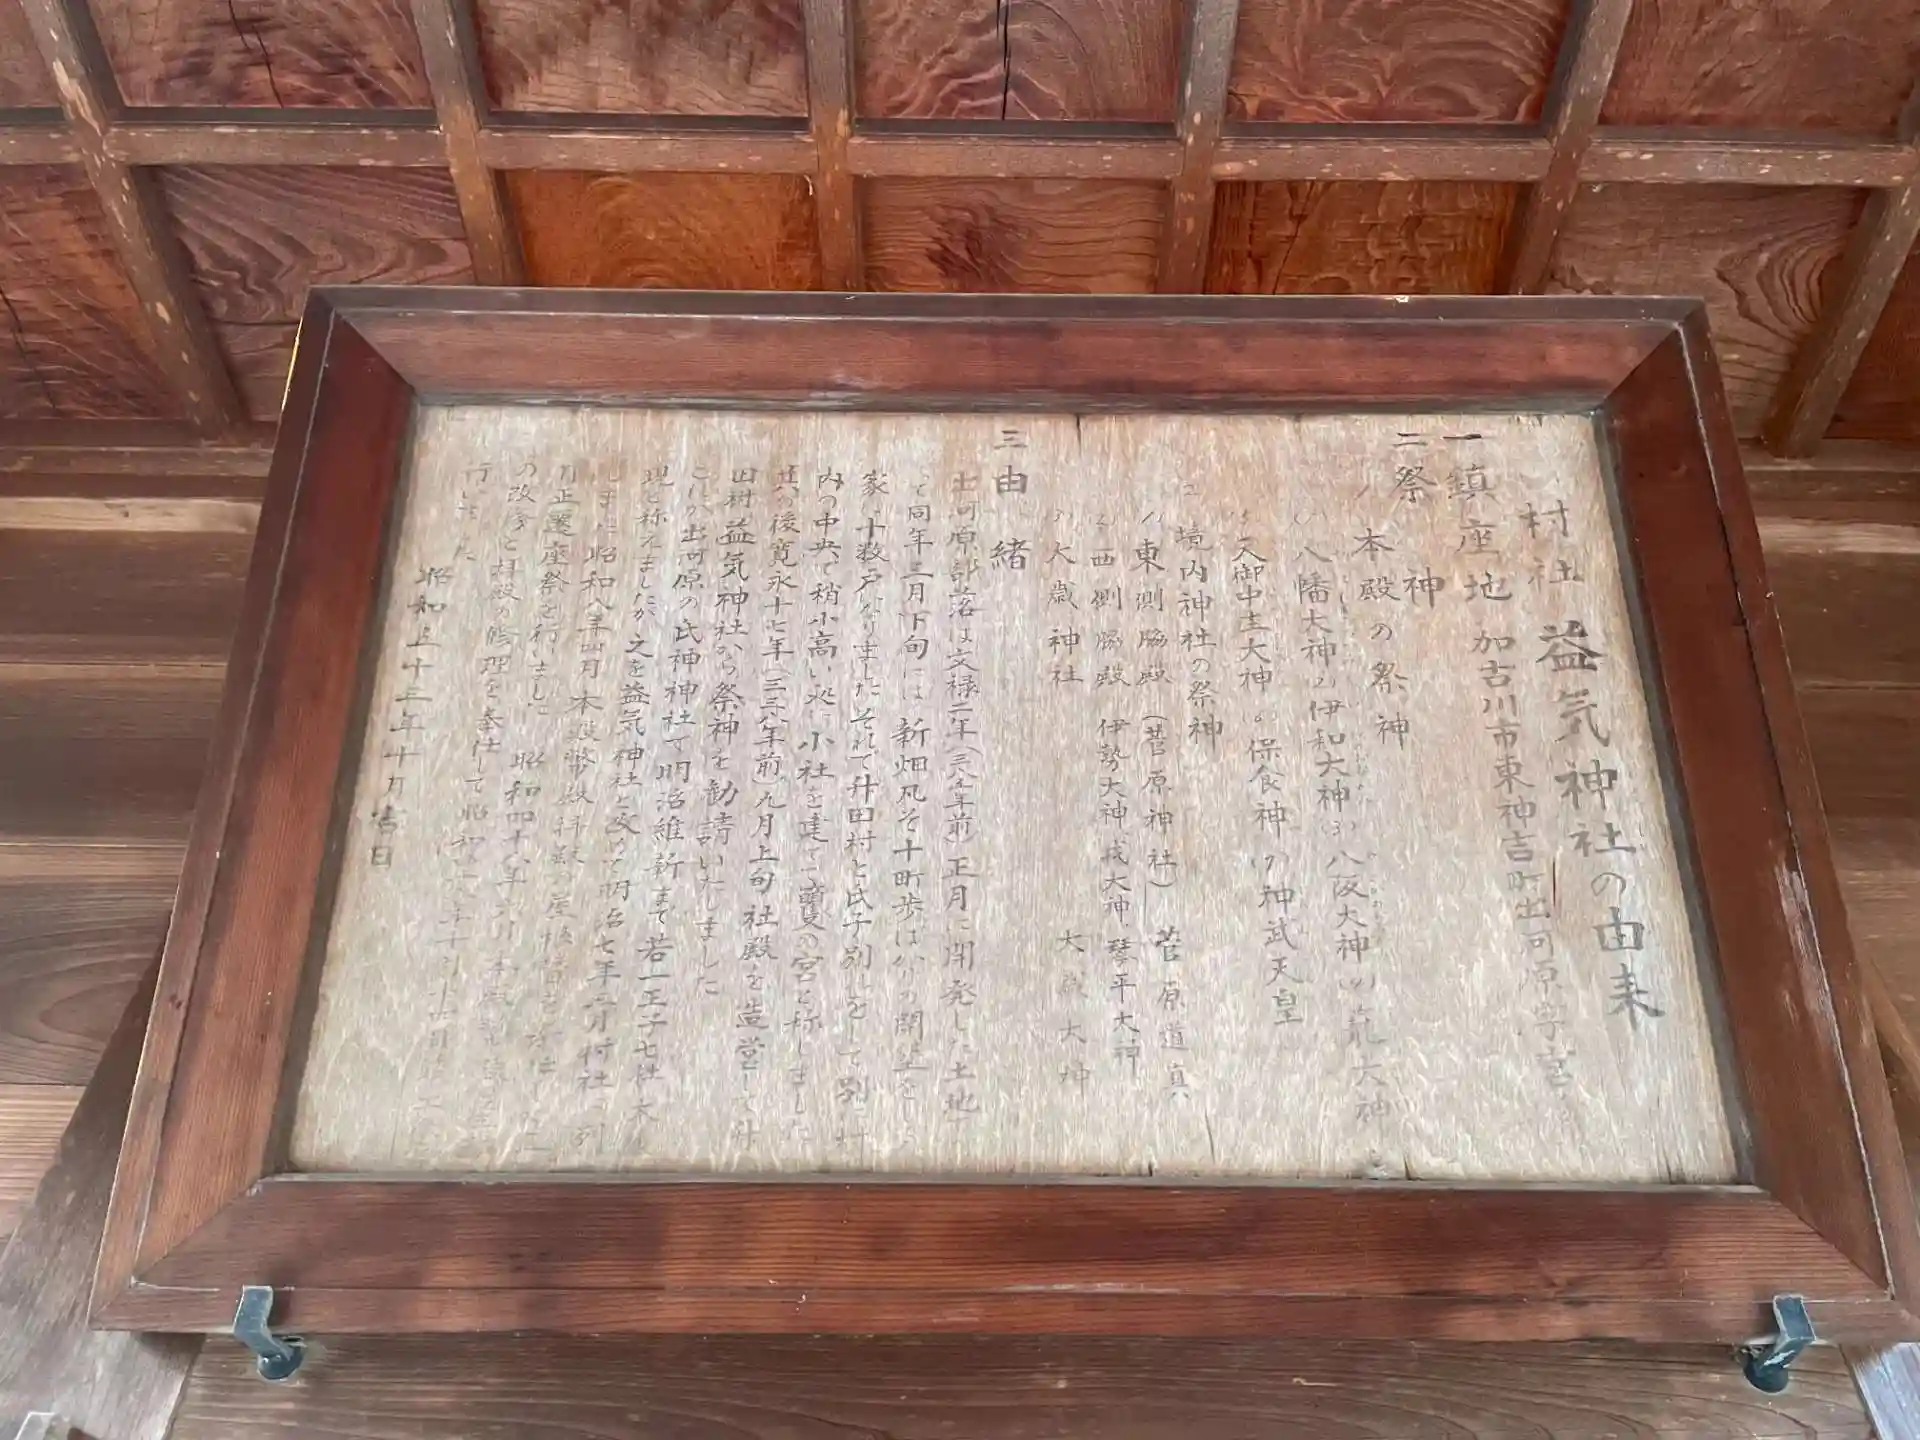 村社 益気神社の由来
一 鎮座地 加古川市東神吉町出河原字宮
二 祭神
1 本殿の祭神
(1) 八幡大神 (2) 伊和大神 (3) 八阪大神 (4) 龍大神
(5) 天御中主大神 (6) 保食神 (7) 神武天皇
2 境内神社の祭神
(1) 東側脇殿 (菅原神社) 菅原道真
(2) 西側脇殿 伊勢大神 戎大神 琴平大神
(3) 大歳神社 大歳大神
三 由緒
出河原部落は文禄二年(三八五年前)正月に開発した土地
て同年三月下旬には新畑凡そ十町歩ばかりの開墾をし
家が十数戸になりましたそれで升田村と氏子別れをして別に村
内の中央で稍小高い処に小社を建てて の宮と称しました
其の後寛永十七年(三三八年前)九月上旬社殿を造営して升
田村益気神社から祭神を勧請いたしました
これが出河原の氏神神社で明治維新まで若一王子七社大
現と称えましたが之を益気神社と改めて明治七年二月村社に列
しました 昭和八年四月本殿幣殿拝殿の屋根
月正遷座祭を行いました 昭和四十八年 月本殿
の改修と拝殿の修理を奉仕して昭和 年十月十四日
行いました
昭和五十三年十月吉日